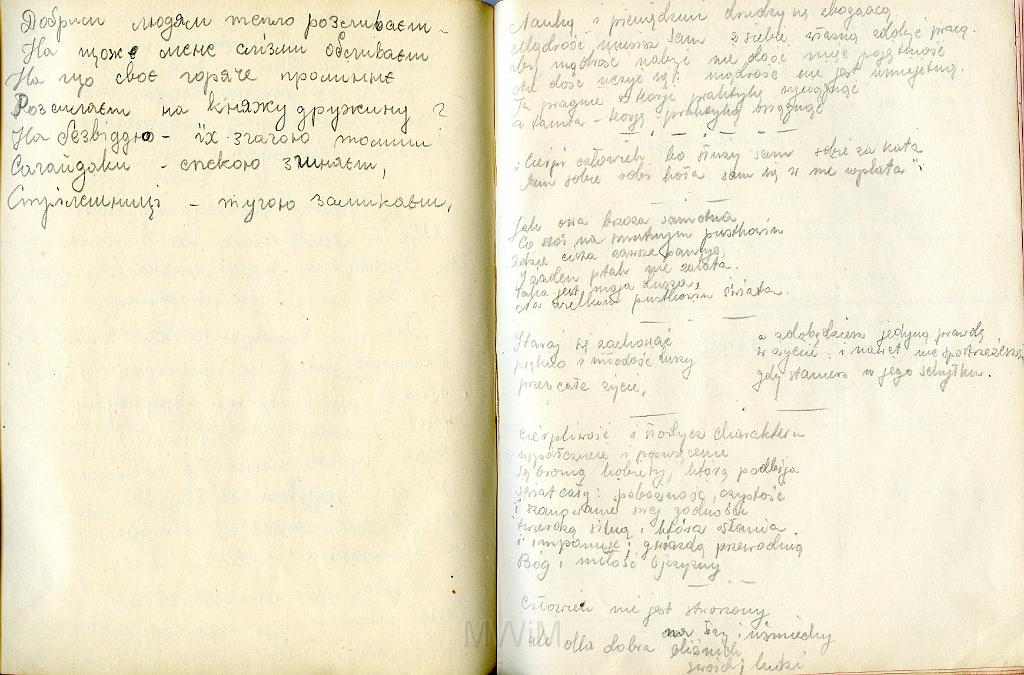 Добрим людям тепло розсиваєш -
На щоже мене слізми обсипаєш
На що своє горяче проміннє
Розсилаєш на княжу дружину ?
На безвіддю - їх згагою томиш
Сагайдаки - спекою згинаєш,
Стрілешниці - тугою замикаєш,
Nauką i pieniędzmi drudzy cię zbogacą
Mądrość musisz sam z siebie własną zdobyć pracą.
aby mądrość nabyć nie dość mieć pojętność
nie dość uczyć się! mądrość nie jest umiejętną.
Ta pragnie teorje praktyką
a tamta - teorją praktykę osiągnąć
"Cierpi człowiek bo służy sam sobie za kata
Sam sobie robi koła sam się w nie wplata".
Jak owa brzoza samotna
Co stoi na smutnym pustkowiu
Gdzie cisza zawsze panuje,
I żaden ptak nie zalata.
Taka jest moja dusza,
Na wielkim pustkowiu świata.
Staraj się zachować
piękno i młodość duszy
przez całe życie,
a zdobędziesz jedyną prawdę
w życiu i nawet nie spostrzeżesz
gdy staniesz u jego schyłku.
Cierpliwość i słodycz charakteru
współczucie i poświęcenie
są bronią kobiety, którą podbija
świat cały: pobożność, czystość
i szanowanie swej godności
twierdzą silną, która osłania
i imponuje; gwiazdą przewodnią
Bóg i miłość Ojczyzny
Człowiek nie jest stworzony
na łzy i uśmiechy
ale dla dobra bliźnich
swoich ludzi
MWiM